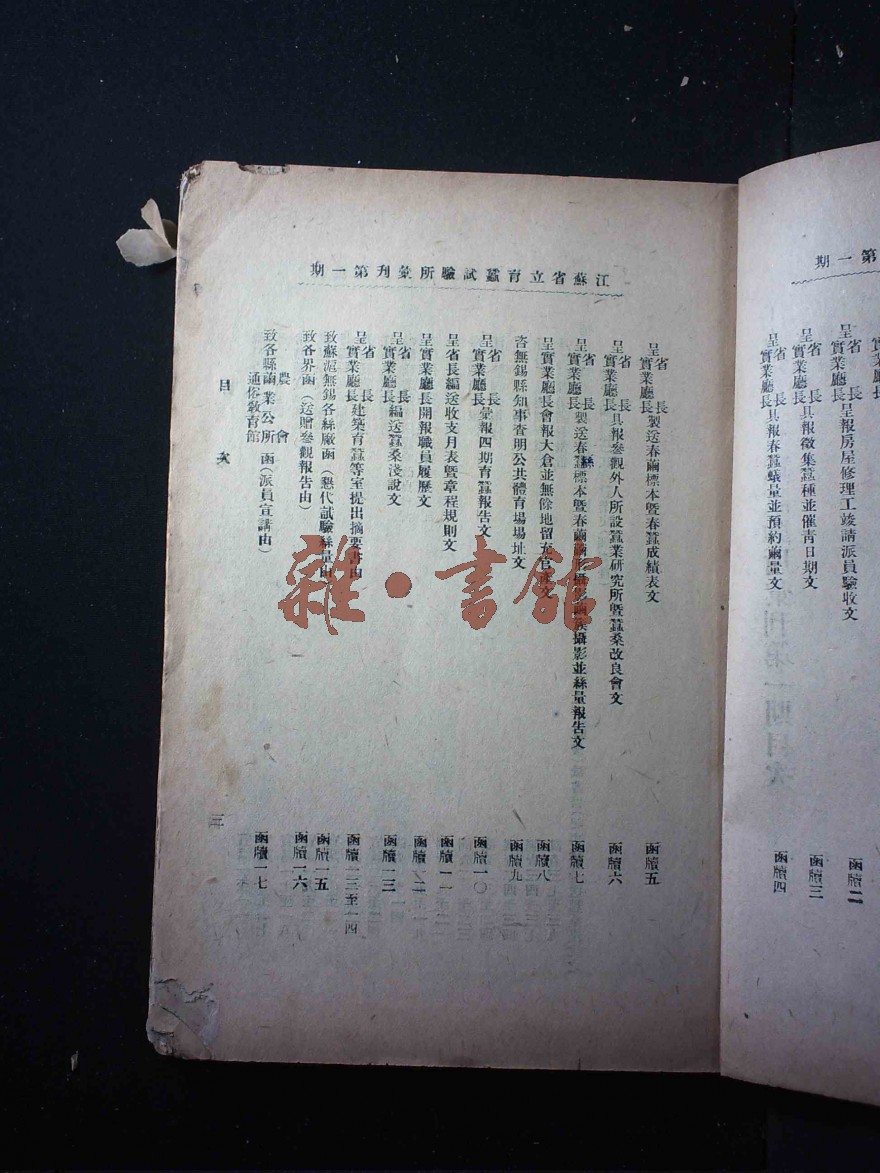 第一期
省
實業廳長
呈省長實業廳長呈報房屋修理工竣請派員驗收文 函牘二
呈省長實業廳長具報徵集蠶種並催靑日期文 函牘三
呈省長實業廳長具報春蠶蟻量並預約繭量文 函牘四
江蘇省立育蠶試驗所彙刊第一期
呈省長實業廳長製送春繭標本曁春蠶成績表文 函牘五
呈省長實業廳長具報參觀外人所設蠶業研究所曁蠶桑改良會文 函牘六
呈省長實業廳長製送春蠶絲標本曁春繭繭形攝影繭族攝影並絲量報告文 函牘七
呈實業廳長會報大倉並無餘地留充官產文 函牘八
咨無錫縣知事查明公共體育場場址文 函牘九
呈省長實業廳長彙報四期育蠶報告文 函牘一〇
呈省長編送收支月表曁章程規則文 函牘一一
呈實業廳長開報職員履歷文 函牘一二
呈省長實業廳長編送蠶桑淺說文 函牘一三
呈省長實業廳長建築育蠶等室提出摘要書由 函牘一三至一四
致蘇滬無錫各絲廠函(懇代試驗絲量由 函牘一五
致各界函(送贈參觀報告由) 函牘一六
致各縣農會繭業公所通俗敎育館函(派員宣講由) 函牘一七
目次
三
雜·書館